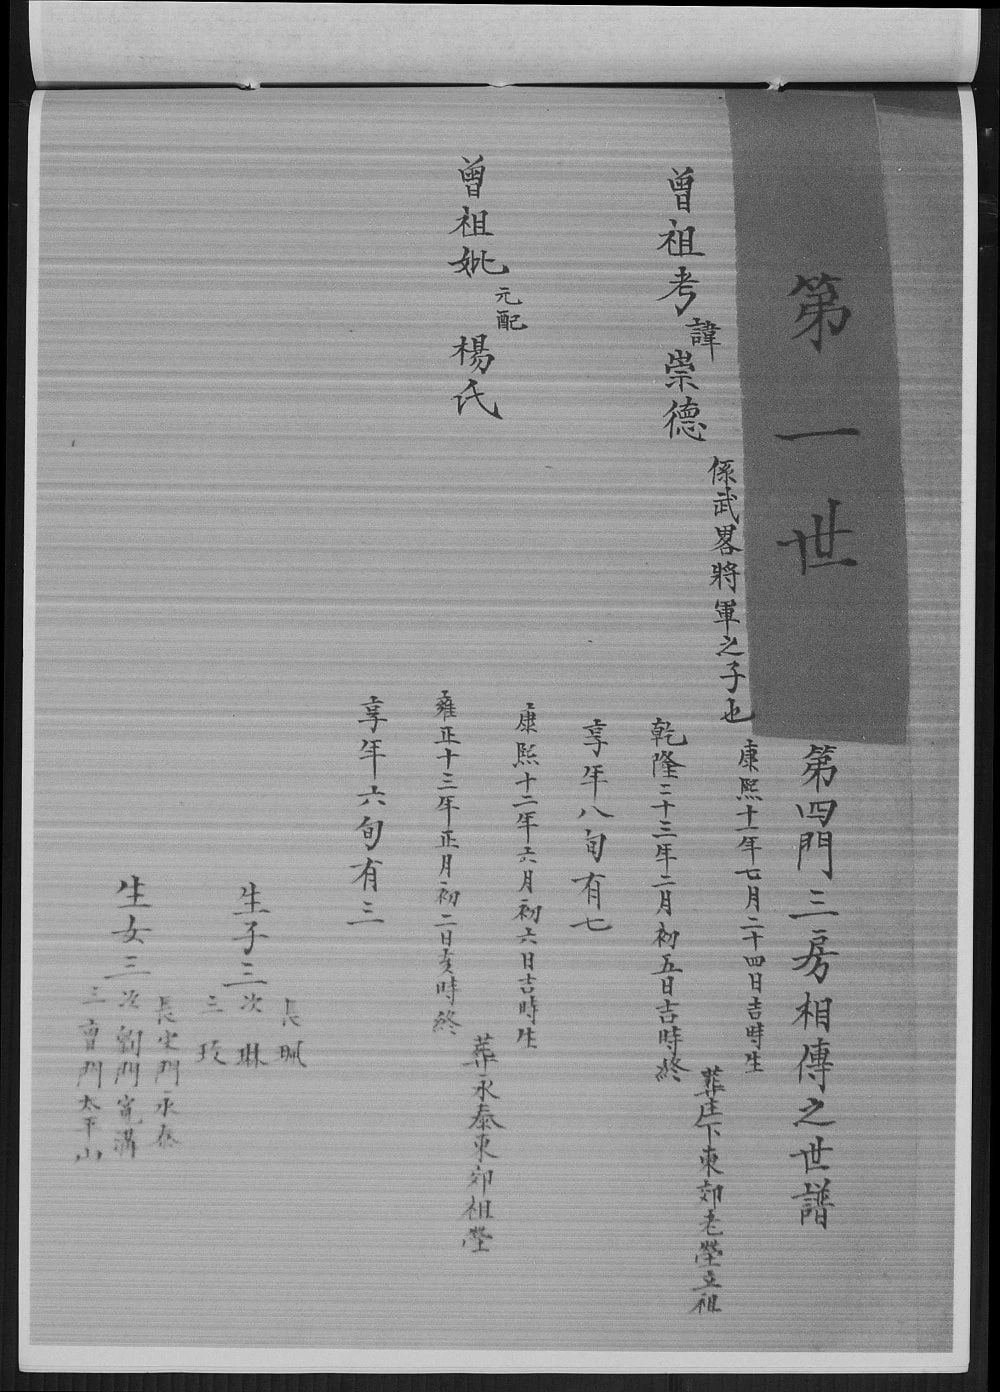 第一世
第四門三房相傳之世譜
曾祖考諱崇德
係武畧將軍之子也
康熙十一年七月二十四日吉時生
乾隆二十三年二月初五日吉時終
葬庄下東郊老塋立祖
享年八旬有七
曾祖妣元配楊氏
康熙十二年六月初六日吉時生
雍正十三年正月初二日亥時終
葬永泰東郊祖塋
享年六旬有三
生子三
長珮
次琳
三
生女三
長宋門永泰
次劉門寬溝
三曹門太平山